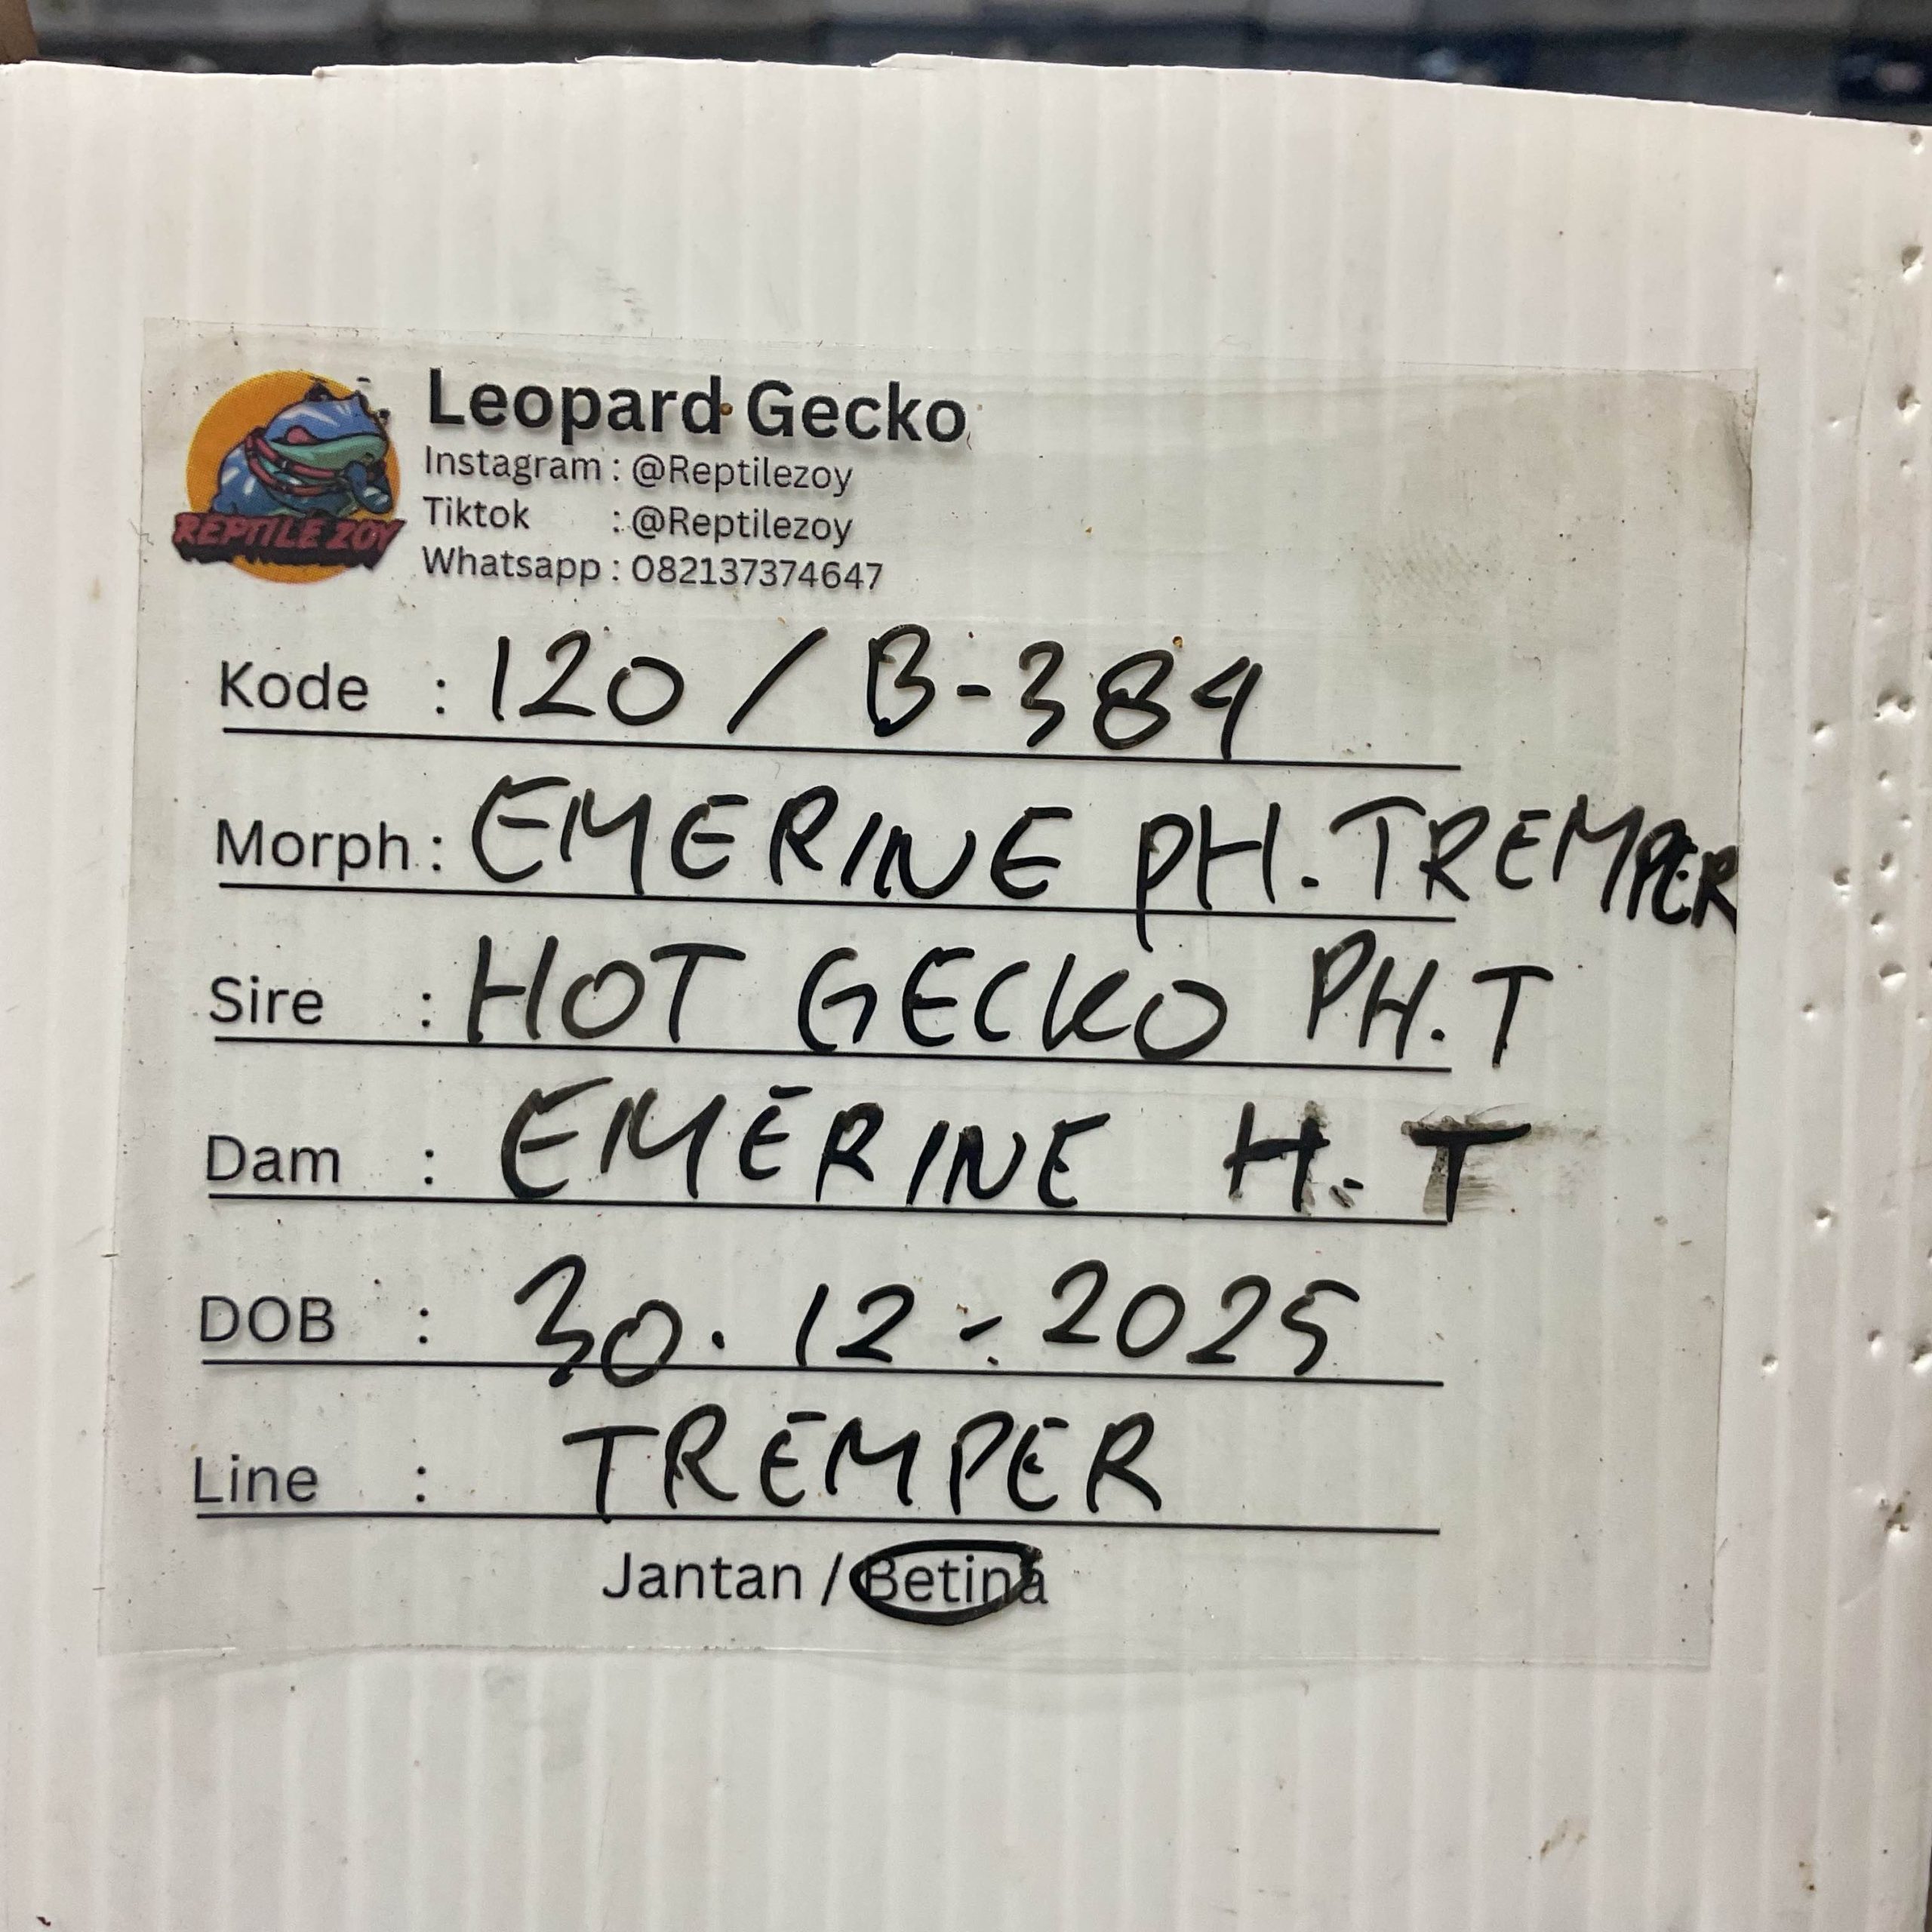 Leopard Gecko
Instagram : @Reptilezoy
Tiktok : @Reptilezoy
Whatsapp : 082137374647
REPTILE ZOY
Kode : 120 / B-384
Morph : EMERINE PH. TREMPER
Sire : HOT GECKO PH. T
Dam : EMERINE H. T
DOB : 30. 12 - 2025
Line : TREMPER
Jantan / Betina